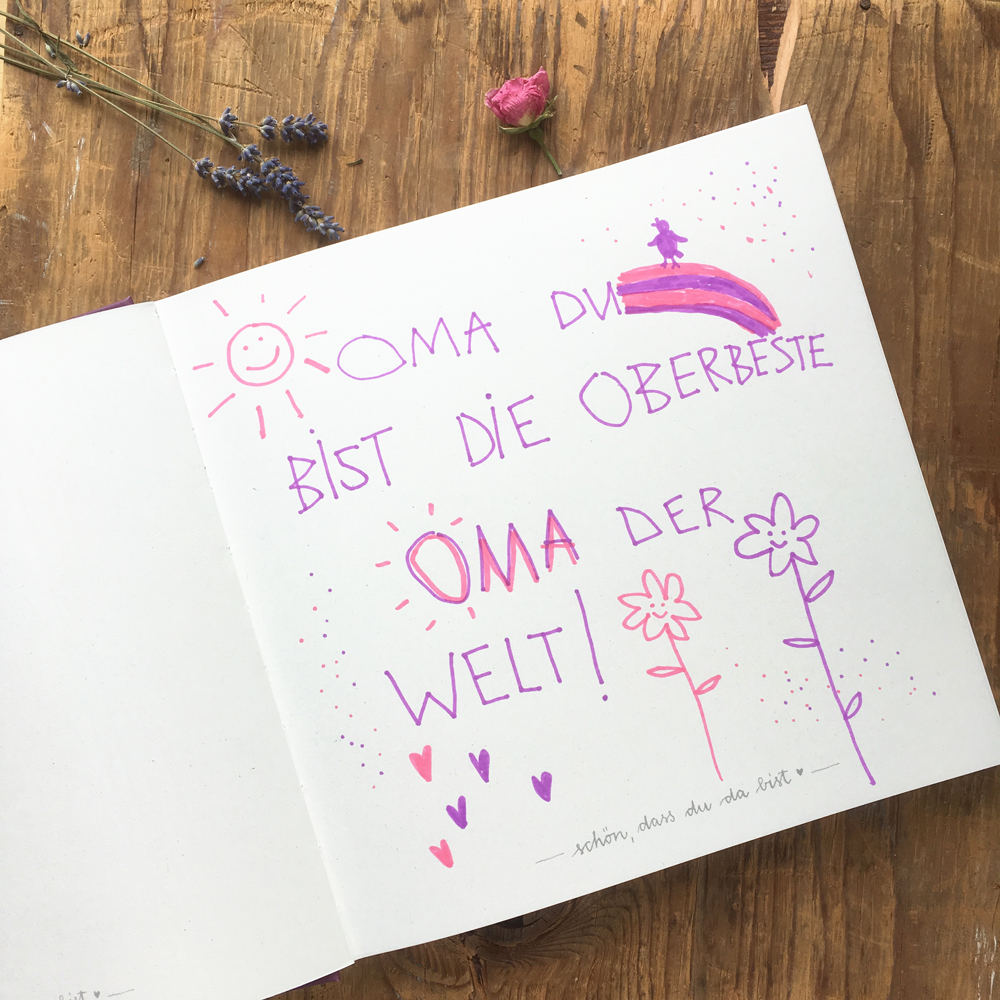 OMA DU
BIST DIE OBERBESTE
OMA DER
WELT!
— schön, dass du da bist ♥ —
bist ♥ —